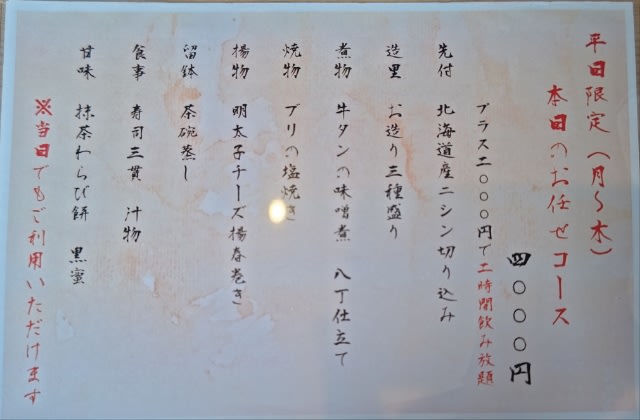 平日限定（月〜木）
本日のお任せコース
四〇〇〇円
プラス二〇〇〇円で二時間飲み放題
先付　北海道産ニシン切り込み
造里　お造り三種盛り
煮物　牛タンの味噌煮　八丁仕立て
焼物　ブリの塩焼き
揚物　明太子チーズ揚春巻き
留鉢　茶碗蒸し
食事　寿司三貫　汁物
甘味　抹茶わらび餅　黒蜜
※当日でもご利用いただけます